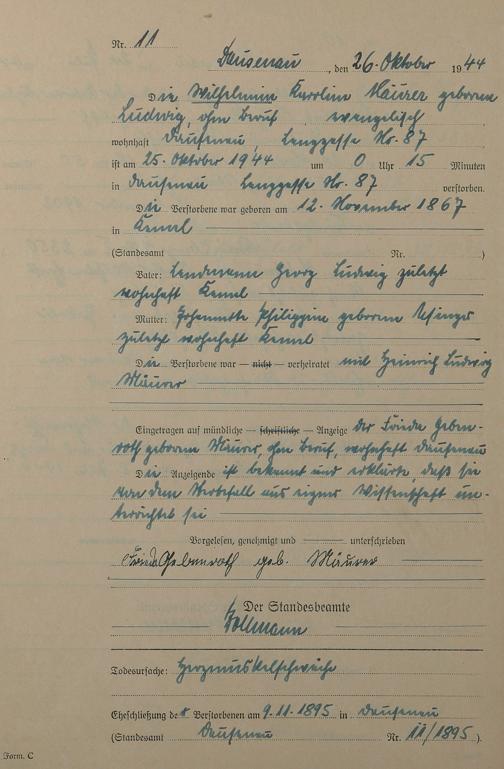 Nr. 11
Dausenau, den 26. Oktober 1944
Die Wilhelmine Karoline Mäurer geborene
Ludwig, ohne Beruf evangelisch
wohnhaft Dausenau, Langgasse Nr. 87
ist am 25. Oktober 1944 um 0 Uhr 15 Minuten
in Dausenau Langgasse Nr. 87 verstorben.
Die Verstorbene war geboren am 12. November 1867
in Kemel
(Standesamt Nr. )
Vater: Landmann Georg Ludwig zuletzt
wohnhaft Kemel
Mutter: Johannette Philippine geborene
zuletzt wohnhaft Kemel
Die Verstorbene war — nicht — verheiratet mit Heinrich Ludwig
Mäurer
Eingetragen auf mündliche — schriftliche — Anzeige der Frieda Geben-
roth geborene Mäurer, ohne Beruf, wohnhaft Dausenau
Die Anzeigende ist bekannt und erklärte, daß sie
von dem Sterbefall aus eigner Wissenschaft un-
terrichtet sei
Vorgelesen, genehmigt und unterschrieben
Frieda Gebenroth geb. Mäurer
Der Standesbeamte
Todesursache: Herzmuskelschwäche
Eheschließung der Verstorbenen am 9.11.1895 in Dausenau
(Standesamt Dausenau Nr. 11/1895).
Form. C